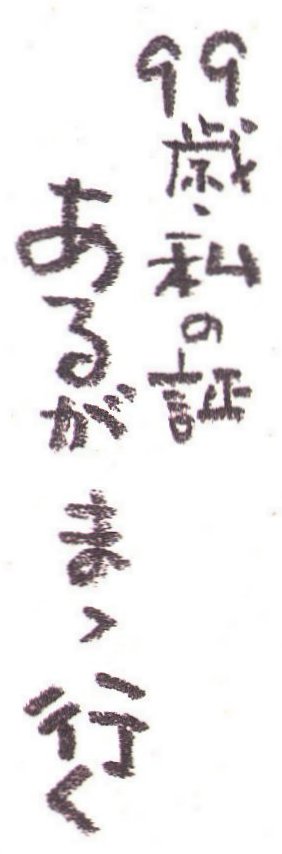 99歳、私の証
あるがまゝ行く